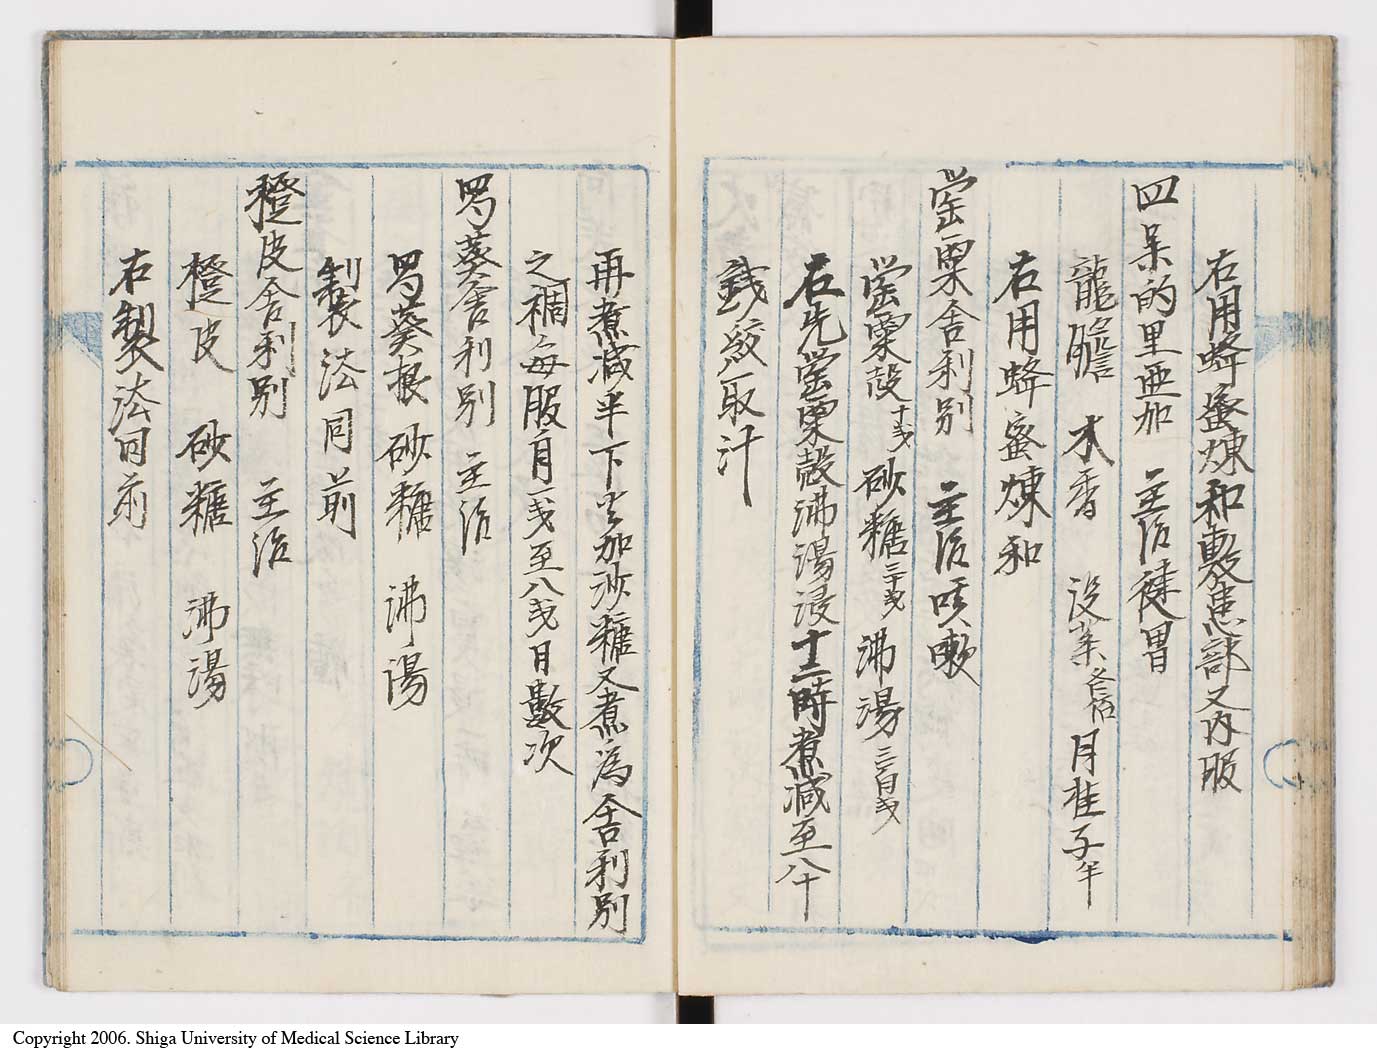 右用蜂蜜煉和敷患部又内服
四呆的里亜加 主治健胃
龍膽 木香 没薬各佰 月桂子半
右用蜂蜜煉和
罌粟舎利別 主治咳嗽
罌粟殻十戔 砂糖二十戔 沸湯三百戔
右先罌粟殻沸湯浸十二時煮減至八十
銭絞取汁
再煮減半下火加沙糖又煮為舎利別
之稠毎服自一戔至八戔日數次
蜀葵舎利別 主治
蜀葵根 砂糖 沸湯
製法同前
橙皮舎利別 主治
橙皮 砂糖 沸湯
右製法同前
Copyright 2006. Shiga University of Medical Science Library